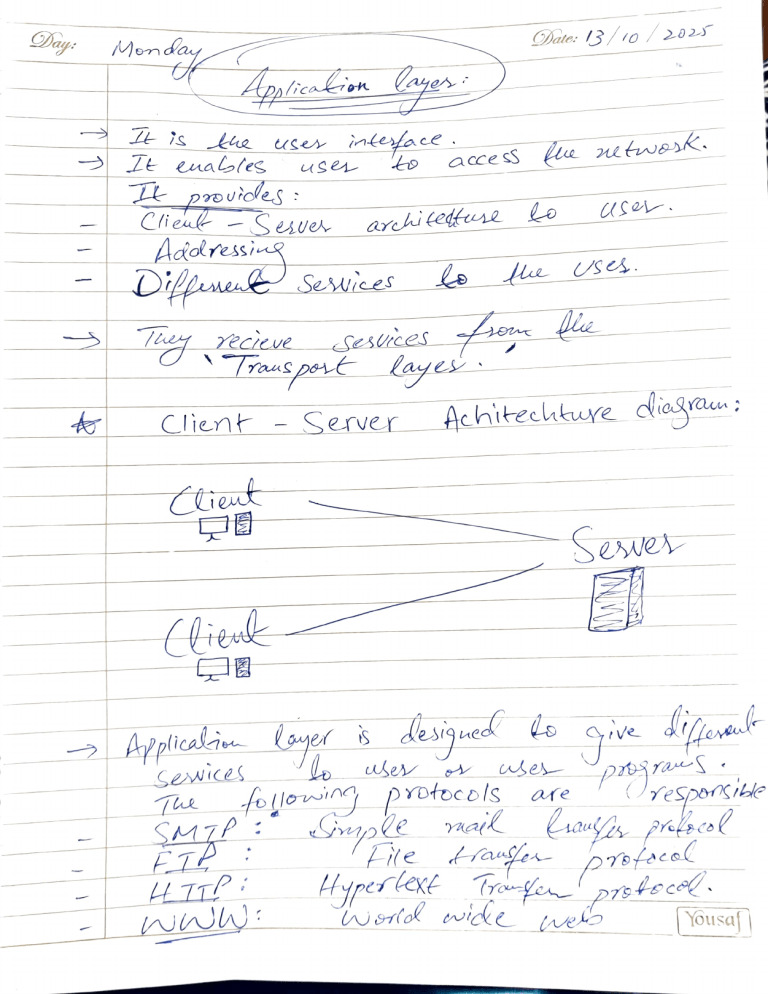 Day: Monday Date: 13/10/2025
Application layer:
→ It is the user interface.
→ It enables user to access the network.
It provides:
- Client - Server architetture to user.
- Addressing
- Different services to the user.
→ They recieve services from the
'Transport layer.'
☆ Client - Server Achitechture diagram:
Client
Server
Client
→ Application layer is designed to give different
services to user or user programs.
The following protocols are responsible
- SMTP: Simple mail transfer protocol
- FTP: File transfer protocol
- HTTP: Hypertext Transfer protocol.
- WWW: World wide web
Yousaf